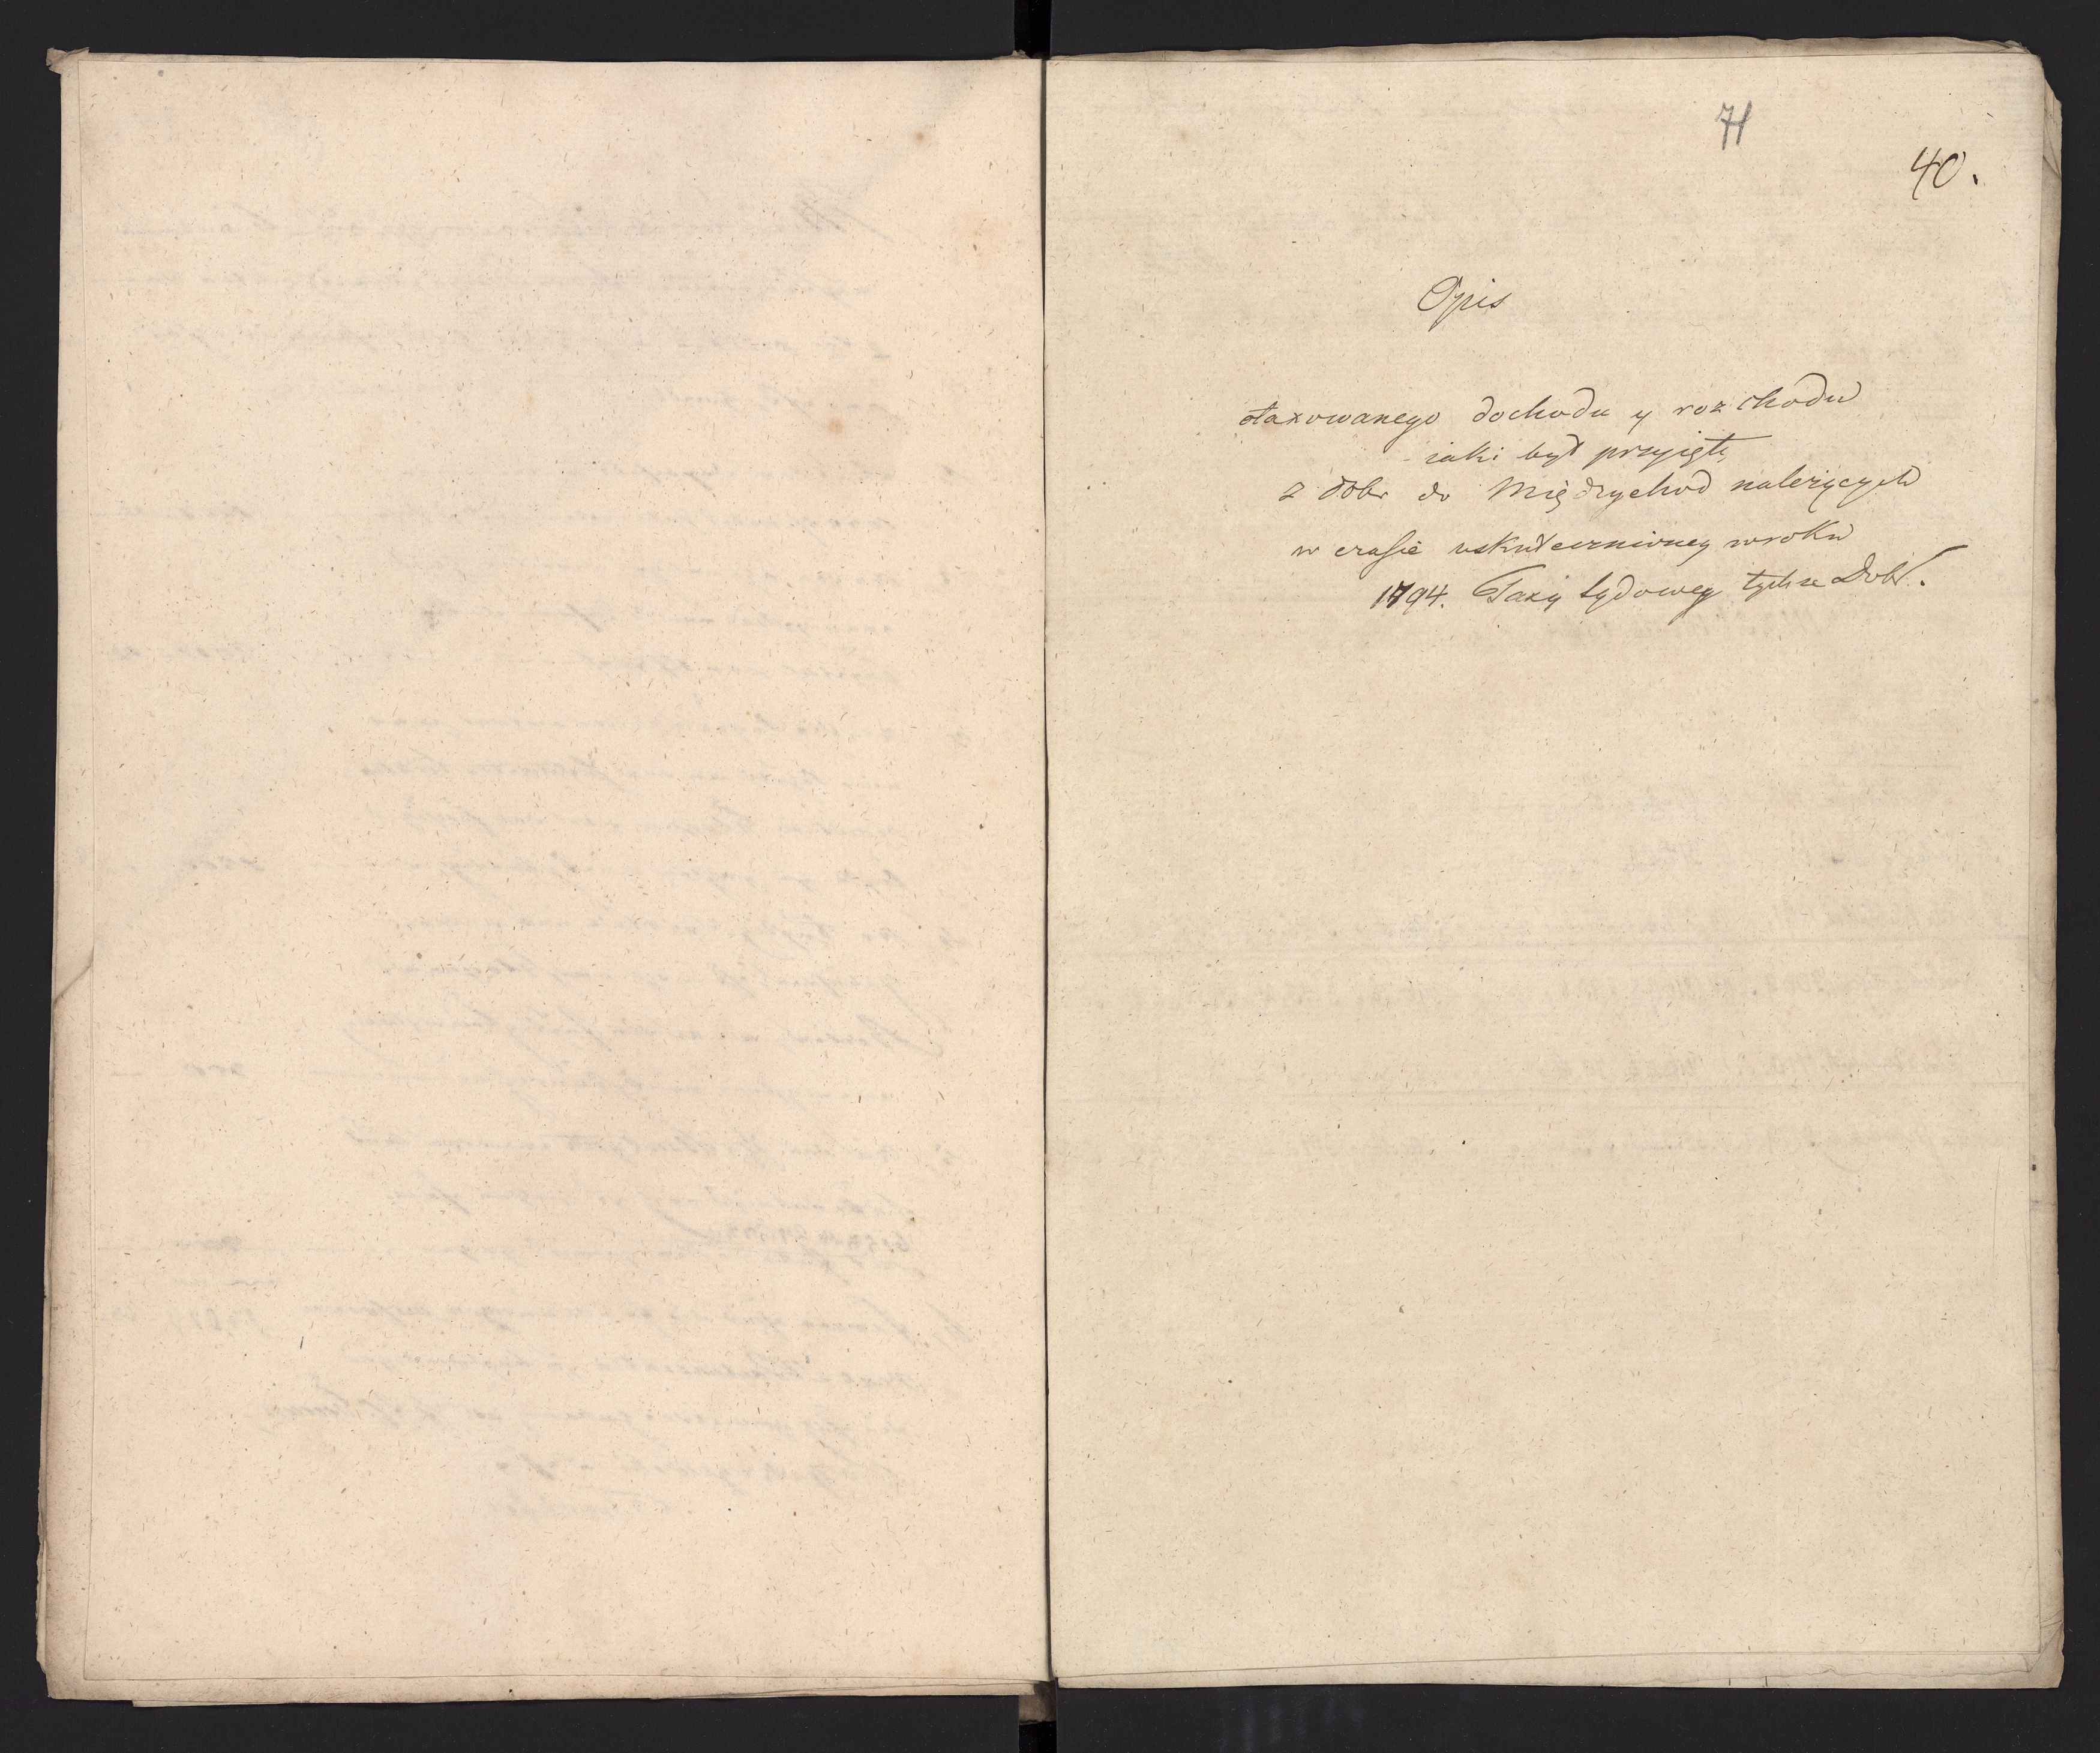 71
40.
Opis
otaxowanego dochodu y rozchodu
iaki był przyięty
z dóbr do Międzychod należących
w czasie uskuteczniony w roku
1794. Taxy sądowey tychże Dobr.